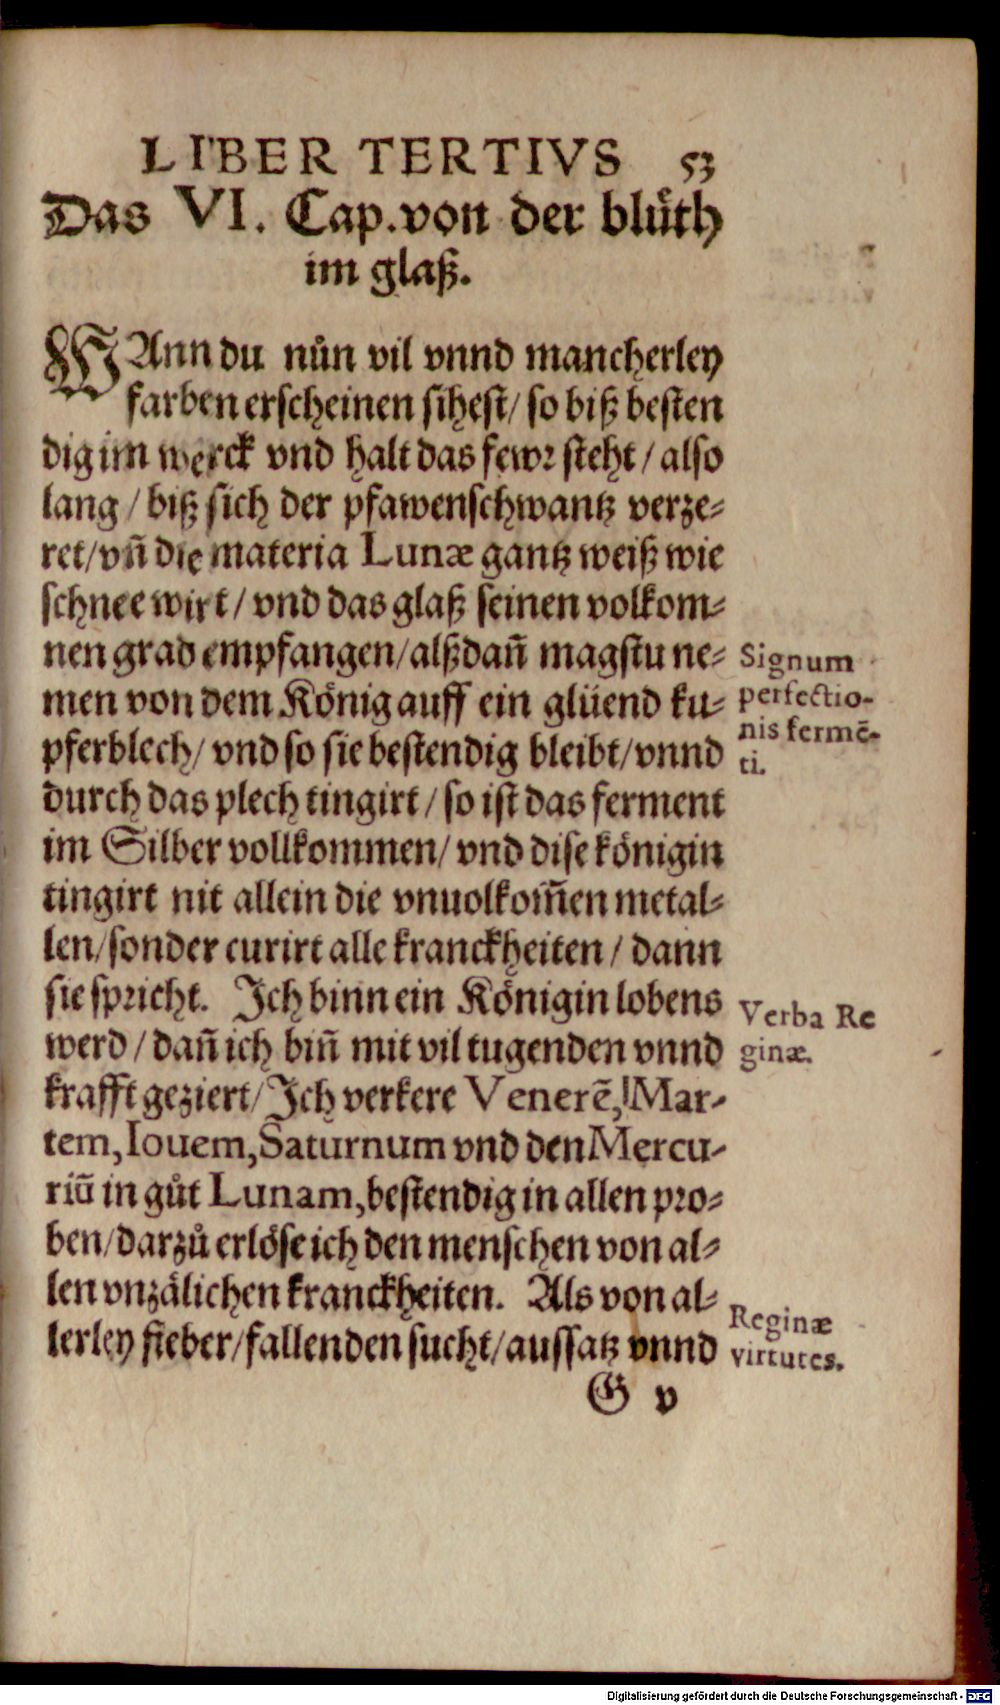 LIBER TERTIVS 53
Das VI. Cap. von der bluͤth
im glaß.
WAnn du nuͤn vil vnnd mancherley
farben erscheinen sihest/ so biß besten
dig im werck vnd halt das fewr steht/ also
lang/ biß sich der pfawenschwantz verze-
ret/ vñ die materia Lunæ gantz weiß wie
schnee wirt/ vnd das glaß seinen volkom-
nen grad empfangen/ alßdañ magstu ne-
Signum
men von dem Koͤnig auff ein gluͤend ku-
perfectio-
nis fermẽ-
pferblech/ vnd so sie bestendig bleibt/ vnnd
ti.
durch das plech tingirt/ so ist das ferment
im Silber vollkommen/ vnd dise koͤnigin
tingirt nit allein die vnuolkom̃en metal-
len/ sonder curirt alle kranckheiten/ dann
sie spricht. Ich binn ein Koͤnigin lobens
Verba Re
werd/ dañ ich biñ mit vil tugenden vnnd
ginæ.
krafft geziert/ Ich verkere Venerẽ, Mar-
tem, Iouem, Saturnum vnd den Mercu-
riũ in guͦt Lunam, bestendig in allen pro-
ben/ darzuͦ erloͤse ich den menschen von al-
len vnzaͤlichen kranckheiten. Als von al-
Reginæ
lerley fieber/ fallenden sucht/ aussatz vnnd
virtutes.
G v
Digitalisierung gefördert durch die Deutsche Forschungsgemeinschaft - DFG